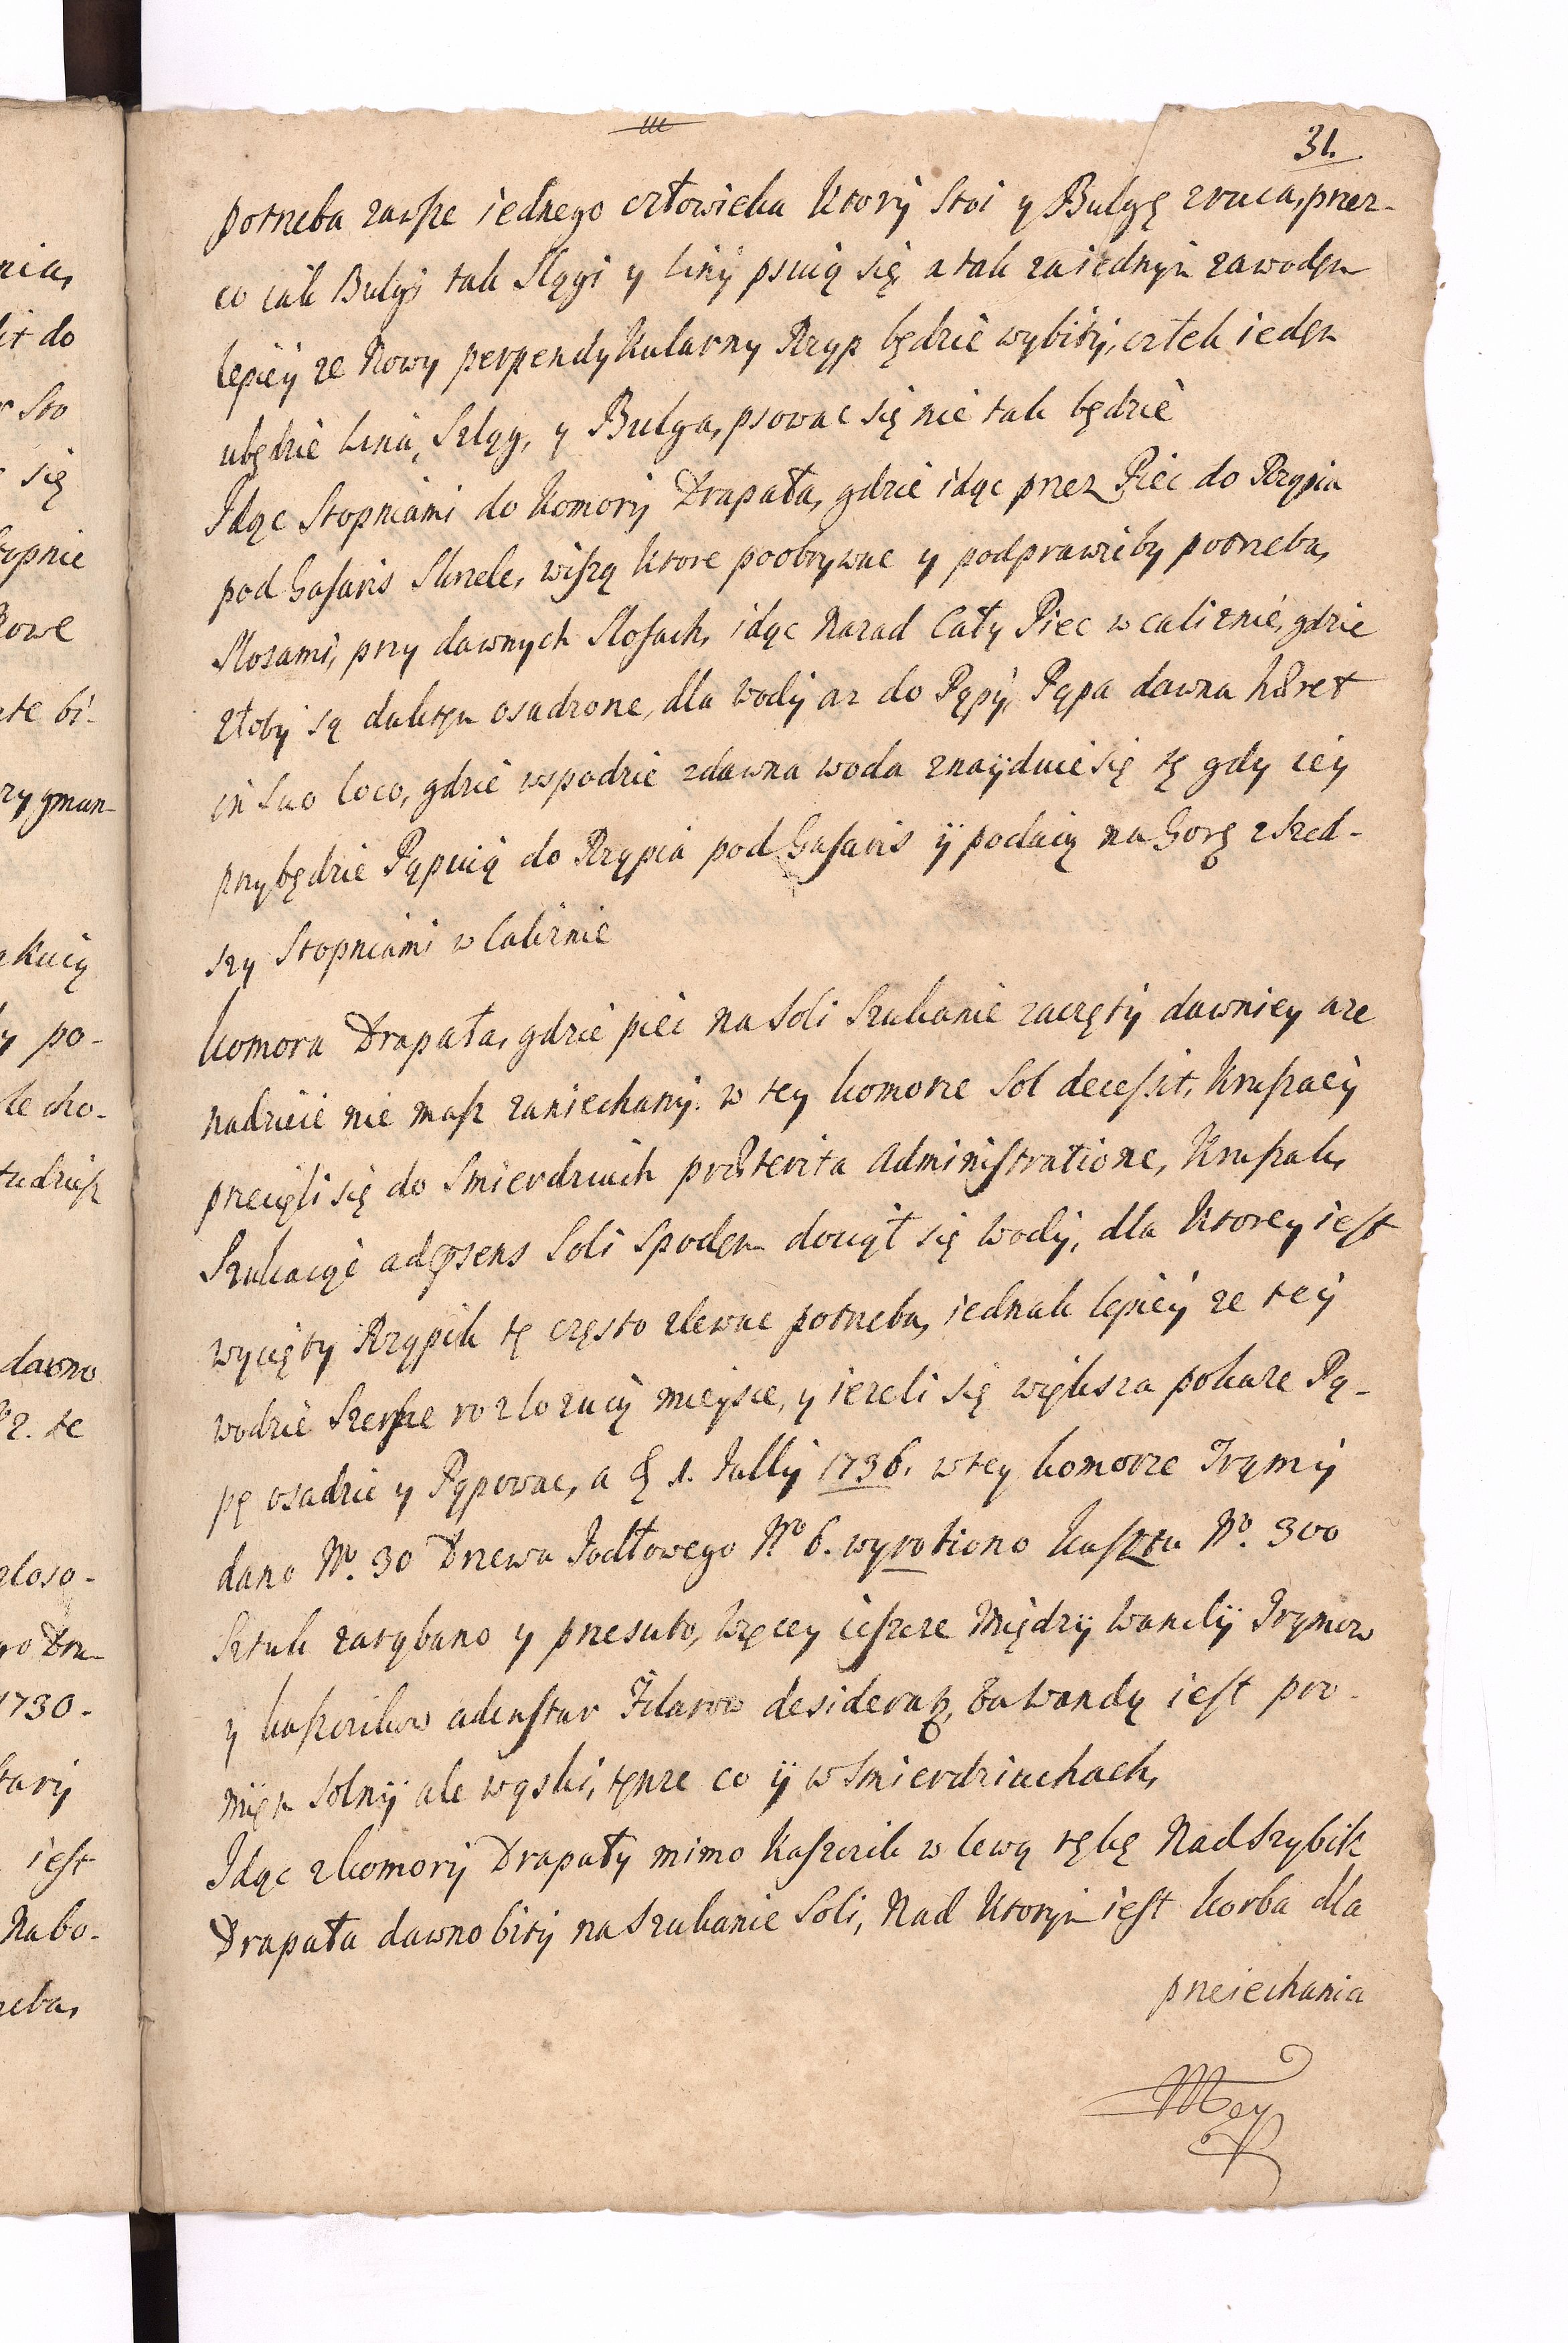 31.
potrzeba zawsze iednego człowieka Ktory stoi y Bulgę zruca, przez-
co iak Bulgi tak Slągi y liny psuią się a tak za iednym zawodem
lepiey ze Nowy perpendykularny Rząp będzie wybity, człek ieden
ubędzie Lina, Szląg, y Bulga, psowac się nie tak będzie
Idąc Stopniami do Komory Drapała, gdzie idąc przez Piec do Rząpia
pod Gasaris Skrzele, wiszą Ktore poobrywac y podprawićby potrzeba,
Slosami, przy dawnych Slosach, idąc Nazad Cały Piec w caliznie, gdzie
złoby są dalitem osadzone, dla Wody az do Pąpy, Pąpa dawna hæret
in Suo loco, gdzie wspodzie zdawna woda znayduie się tę gdy iey
przybędzie Pąpuią do Rząpia pod Gasaris y podaią na Gorę zszed-
szy Stopniami w Caliznie
Komora Drapała, gdzie piec na Soli Szukanie zaczęty dawniey aze
nadzieie nie masz zaniechany. w tey komorze Sol decessit, Kruszacy
przecięli się do Smierdziuch præterita Administratione, Kruszak,
Szukaiąc adpsens Soli Spodem dociął się Wody, dla Ktorey iest
wycięty Rząpik tę często zlewac potrzeba, iednak lepiey ze tey
wodzie Szersze rozłozuią mieysce, y iezeli się większa pokaze Pą-
pę osadzic y Pąpowac, a 1. Julij 1736. w tey komorze Trąmy
dano No. 30 Drzewa Jodłowego No 6. wyrobiono Kasztu No. 300
Sztuk zarąbano y przesuto, Węcey ieszcze Między Wandy Trąmow
y kaszcikow adinstar Filarow desiderat, za Wandą iest pro-
mień Solny ale wąski, tęnze co y w Smierdziuchach,
Idąc z komory Drapały mimo Kaszcik w lewą rękę Nad Szybik
Drapała dawno bity na Szukanie Soli, Nad Ktorym iest korba dla
przeiechania